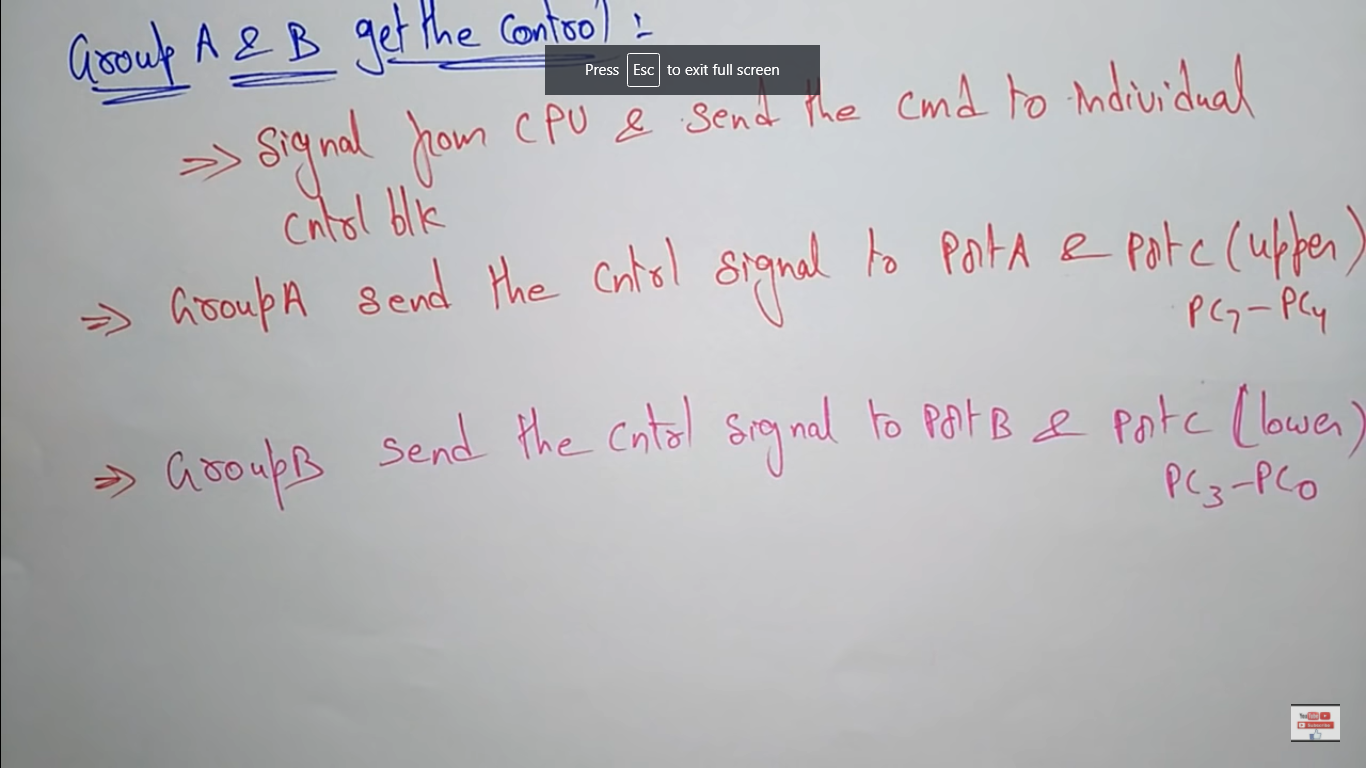 Group A & B get the Control :-
Press Esc to exit full screen
⇒> Signal from CPU & send the cmd to Individual
Cntrl blk
⇒> Group A send the Cntrol signal to Port A & Port C (upper)
PC7 - PC4
⇒> Group B send the Cntrol signal to Port B & Port C (lower)
PC3 - PC0
YouTube
Subscribe